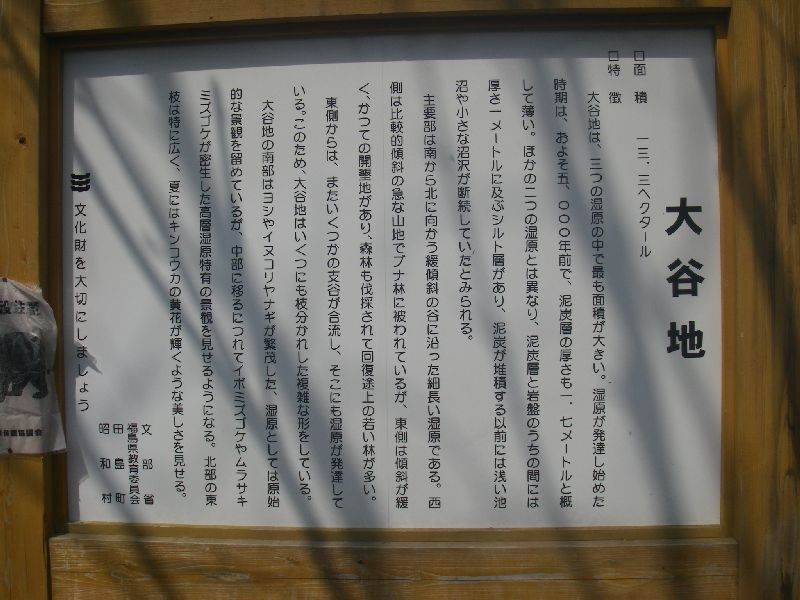 大谷地
□面積　一三．三ヘクタール
□特徴
大谷地は、三つの湿原の中で最も面積が大きい。湿原が発達し始めた
時期は、およそ五、〇〇〇年前で、泥炭層の厚さも一．七メートルと概
して薄い。ほかの二つの湿原とは異なり、泥炭層と岩盤のうちの間には
厚さ一メートルに及ぶシルト層があり、泥炭が堆積する以前には浅い池
沼や小さな沼沢が断続していたとみられる。
主要部は南から北に向かう緩傾斜の谷に沿った細長い湿原である。西
側は比較的傾斜の急な山地でブナ林に被われているが、東側は傾斜が緩
く、かつての開墾地があり、森林も伐採されて回復途上の若い林が多い。
東側からは、またいくつかの支谷が合流し、そこにも湿原が発達して
いる。このため、大谷地はいくつにも枝分かれした複雑な形をしている。
大谷地の南部はヨシやイヌコリヤナギが繁茂した、湿原としては原始
的な景観を留めているが、中部に移るにつれてイボミズゴケやムラサキ
ミズゴケが密生した高層湿原特有の景観を見せるようになる。北部の東
枝は特に広く、夏にはキンコウカの黄花が輝くような美しさを見せる。
文部省
福島県教育委員会
田島町
昭和村
文化財を大切にしましょう